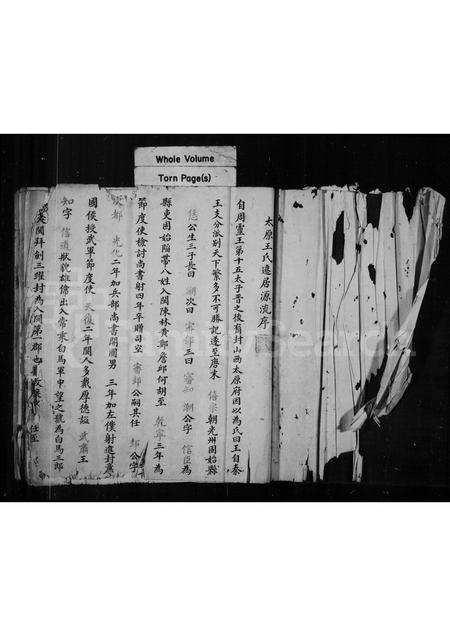 Whole Volume
Torn Page(s)
太原王氏遷居源流序
自周靈王第十五太子晉之後裔封山西太原府因以為氏曰王自秦
王支分派別天下繁多不可勝記遷至唐末 僖宗朝光州固始縣
恁公生三子長曰 潮次曰 審邽三曰 審知 潮公字 信臣為
縣吏固始隨帶八姓入閩陳林黃鄭詹邱何胡至 乾寧三年為
節度使檢討尚書射四年卒贈司空 審邽公嗣其任 邽公字
次都 光化二年加兵部尚書開國男 三年加左僕射進封
國侯授武軍節度使 天復二年閩人多戴厚德謚 武肅王
知字 信通狀貌雄偉出入常乘白馬軍中望之號為白馬三郎
閩拜劍三躍封為入閩第一郡也